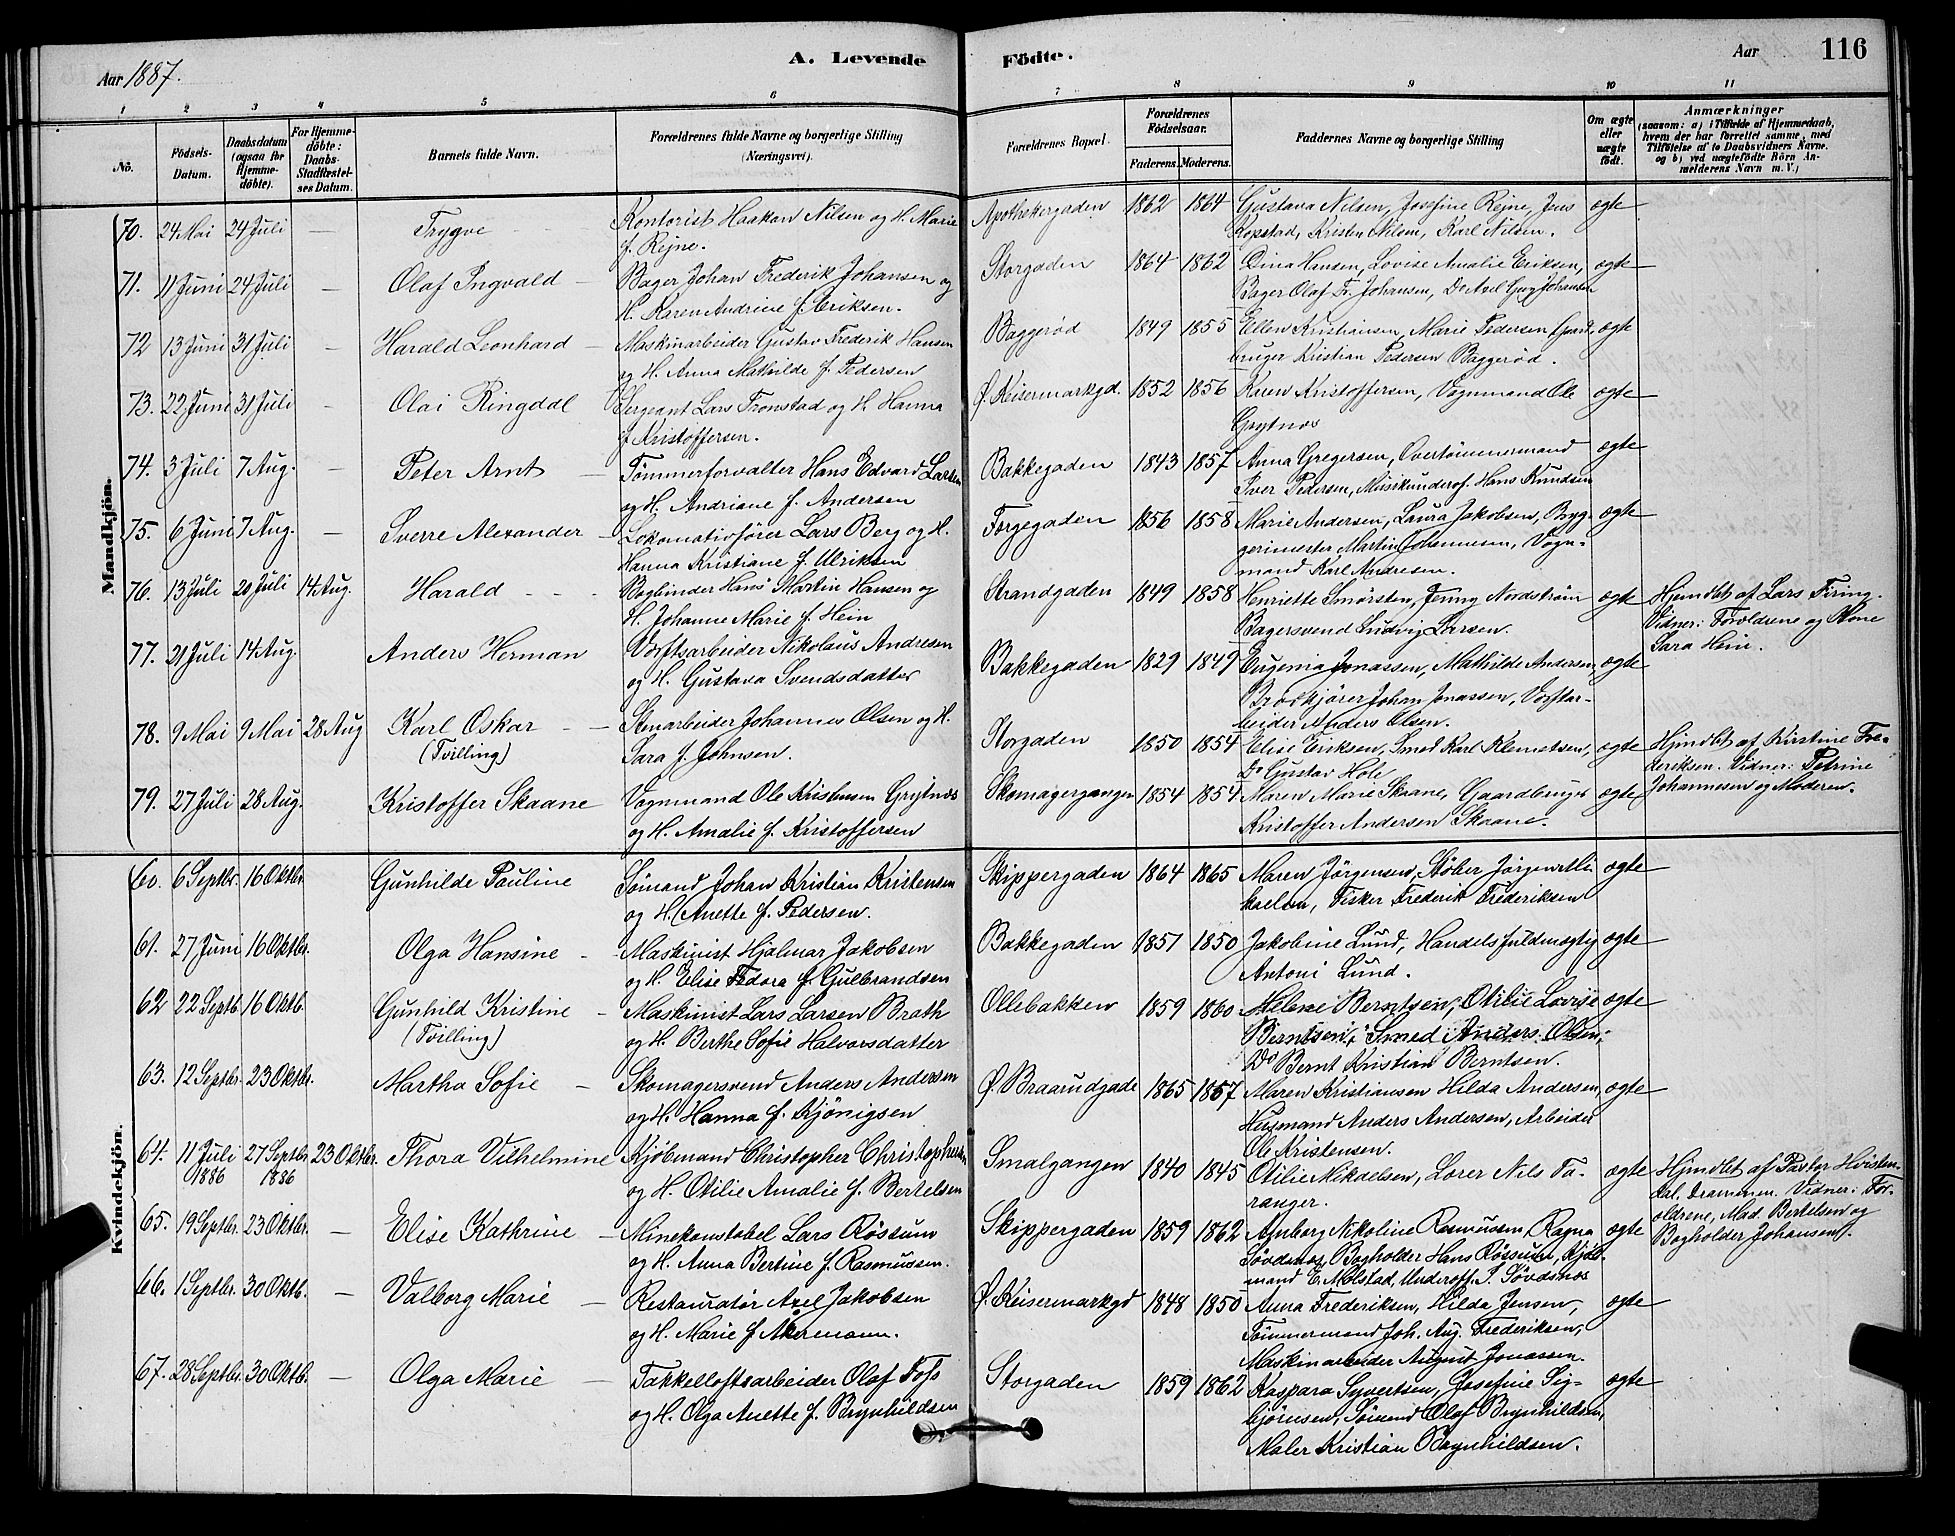 Aar 1887.
A. Levende
Födte.
Aar
116
1 2 3 4 5 6 7 8 9 10 11
No.
Födsels-Datum.
Daabsdatum (ogsaa for Hjemme-döbte).
For Hjemme-döbte: Daabs-Stadfæstel-ses Datum.
Barnets fulde Navn.
Forældrenes fulde Navne og borgerlige Stilling (Næringsvei).
Forældrenes Bopæl.
Forældrenes Födselsaar.
Faderens. Moderens.
Faddernes Navne og borgerlige Stilling
Om ægte eller uægte født.
Anmærkninger
(saasom: a) i Tilfælde af Hjemmedaab,
hvem der har forrettet samme, med
Tilföielse af to Daabsvidners Navne.
og b) ved uægtefödte Börn An-
melderens Navn m. V.)
Mandkjön.
70. 24 Mai 24 Juli — Trygve Kontorist Haakon Nilsen og H. Marie Apothekergaden 1862 1864 Gustava Nilsen, Josefine Rejne, Jens ægte
f. Rejne. Kopstad, Kristen Nilsen, Karl Nilsen.
71. 11 Juni 24 Juli — Olaf Ingvald — Bager Johan Frederik Johansen og Storgaden 1864 1862 Dina Hansen, Lovise Amalie Eriksen, ægte
H. Karen Andrine f. Eriksen. Bager Olaf Fr. Johansen, Do Axel Johansen
72 13 Juni 31 Juli — Harald Leonhard — Maskinarbeider Gustav Frederik Hansen Baggerød 1849 1855 Ellen Kristiansen, Marie Pedersen Gaard- ægte
og H. Anna Mathilde f. Pedersen bruger Kristian Pedersen Baggerød.
73. 22 Juni 31 Juli — Olai Ringdal Sergeant Lars Tronstad og H. Hanna Ø. Keisermarkgd. 1852 1856 Karen Kristoffersen, Vognmand Ole ægte
f. Kristoffersen. Grytnæs
74. 3 Juli 7 Aug. — Peter Arnt — Tømmerforvalter Hans Edvard Larsen Bakkegaden 1843 1857 Anna Gregersen, Overtømmermand ægte
og H. Andriane f. Andersen Iver Pedersen, Musikunderof. Hans Knudsen
75. 6 Juni 7 Aug. — Sverre Alexander — Lokomotivfører Lars Berg og H. Torgegaden 1856 1858 Marie Andersen, Laura Jakobsen, Byg- ægte
Hanna Kristiane f. Ulriksen gerimester Martin Johannesen, Vogn-
mand Karl Andresen.
76. 13 Juli 20 Juli 14 Aug. Harald — Bogbinder Hans Martin Hansen og Strandgaden 1849 1858 Henriette Smørsten, Jenny Nordstrøm ægte Hjemdbt af Lars Firing.
H. Johanne Marie f. Hein Bagersvend Ludvig Larsen. Vidner: Forældrene og Kone
Sara Hein.
77. 21 Juli 14 Aug. Anders Herman Værftsarbeider Nikolaus Andresen Bakkegaden 1829 1849 Eugenia Jonassen, Mathilde Andersen, ægte
og H. Gustava Svendsdatter Brødkjører Johan Jonassen, Værftar-
beider Anders Olsen.
78. 9 Mai 9 Mai 28 Aug Karl Oskar — Stenarbeider Johannes Olsen og H. Storgaden 1850 1854 Elise Eriksen, Smed Karl Klemetsen, ægte Hjmdbt af Kirstine Fre-
(Tvilling) Sara f. Johnsen. Do Gustav Hole deriksen. Vidner: Petrine
79. 27 Juli 28 Aug. Kristoffer Skaane Vognmand Ole Kristensen Grytnæs Skomagergangen 1854 1854 Maren Marie Skaane, Gaardbruger ægte Johannesen og Moderen.
og H. Amalie f. Kristoffersen Kristoffer Andersen Skaane.
Kvindekjön.
60. 6 Septbr. 16 Oktbr. Gunhilde Pauline Sømand Johan Kristian Kristensen Skippergaden 1864 1865 Maren Jörgensen, Støber Jörgen Mi- ægte
og H. Anette f. Pedersen. kaelsen, Fisker Frederik Frederiksen
61. 27 Juni 16 Oktbr. Olga Hansine — Maskinist Hjalmar Jakobsen Bakkegaden 1851 1850 Jakobine Lund, Handelsfuldmægtig ægte
og H. Elise Fedora f. Gulbrandsen Antoni Lund.
62 22 Septb. 16 Oktb. Gunhild Kristine — Maskinist Lars Larsen Brath Ollebakken 1859 1860 Helene Berntsen, Otilie Lovise ægte
(Tvilling) og H. Berthe Sofie Halvorsdatter Berntsen, Smed Anders Olsen,
Do Bernt Kristian Berntsen.
63. 12 Septbr. 23 Oktbr. Martha Sofie — Skomagersvend Anders Andersen Ø. Braarudgade 1865 1867 Maren Kristiansen Hilda Andersen, ægte
og H. Hanna f. Kjönigsen Husmand Anders Andersen, Arbeider
Ole Kristensen.
64. 11 Juli 27 Septbr 23 Oktbr. Thora Vilhelmine Kjøbmand Christopher Christophersen Smalgangen 1840 1845 Otilie Mikaelsen, Lærer Nils Ta- ægte Hjmdbt af Pastor Hvisten-
1886 1886 og H. Otilie Amalie f. Bertelsen ranger. dal, Drammen. Vidner: For-
65. 19 Septbr. 23 Oktbr. — Elise Kathrine — Minekonstabel Lars Røssum Skippergaden 1859 1862 Nikoline Rasmussen, Ragna ægte ældrene, Mad. Bertelsen og
og H. Anna Bertine f. Rasmussen. Søvdsnæs, Bogholder Hans Røssum, Kjøb- Bogholder Johansen.
mand E. Mølstad, Underoff. P. Søvdsnæs
66. 1 Septbr. 30 Oktb. — Valborg Marie — Restauratør Axel Jakobsen Ø. Keisermarkgd 1848 1850 Anna Frederiksen, Hilda Jensen, ægte
og H. Marie f. Akermann. Tømmermand Joh. Aug. Frederiksen,
Maskinarbeider August Jonassen.
67. 28 Septbr. 30 Oktb. — Olga Marie — Takkelloftsarbeider Olaf Foss Storgaden 1859 1862 Kaspara Syvertsen, Josefine Sig- ægte
og H. Olga Anette f. Brynhildsen björnsen, Sømand Olaf Brynhildsen,
Maler Kristian Brynhildsen.